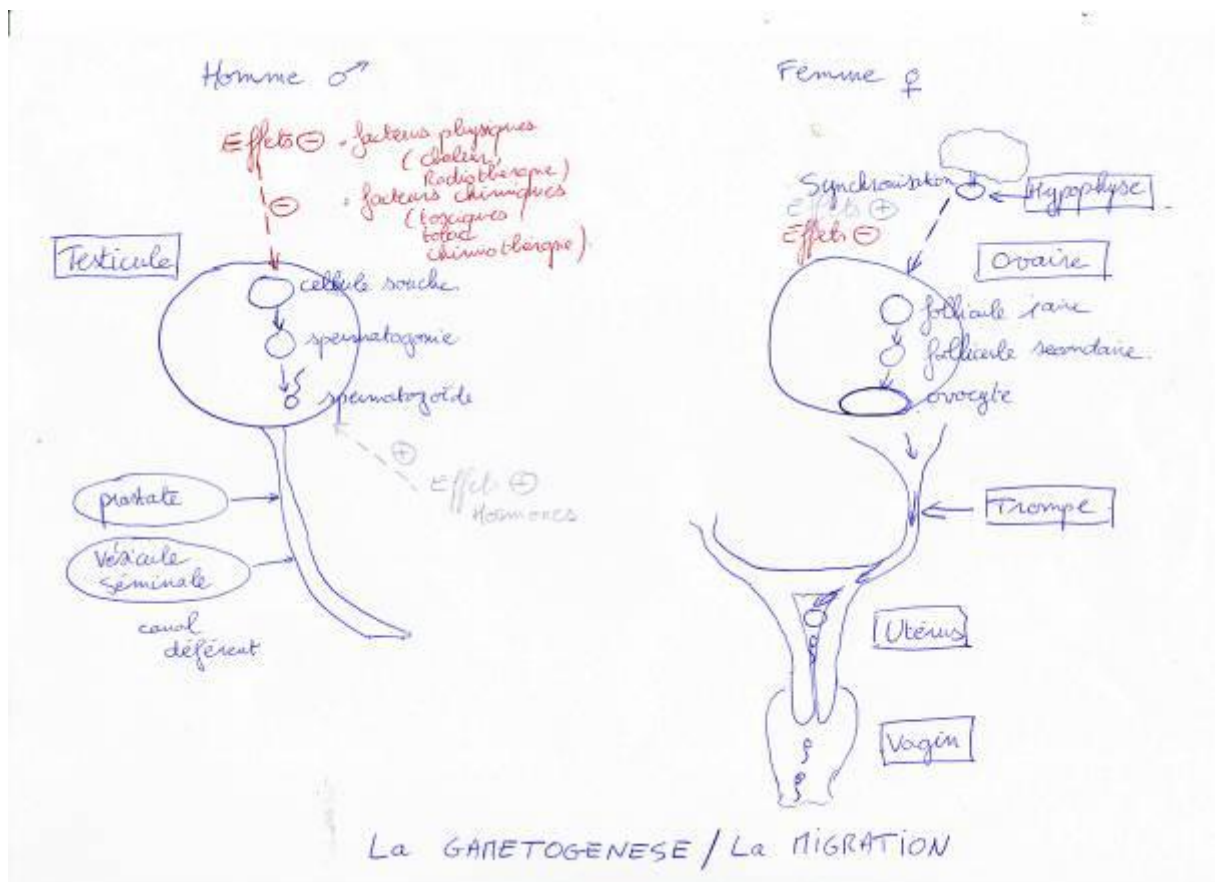 Homme ♂
Effets ⊖ . facteurs physiques
(chaleur,
Radiothérapie)
⊖ . facteurs chimiques
(toxiques
tabac
chimiothérapie).
Testicule
cellule souche
spermatogonie
spermatozoïde
⊕
Effets ⊕
Hormones
prostate
Vésicule
séminale
canal
déférent
Femme ♀
Synchronisation
Hypophyse
Effets ⊕
Effets ⊖
Ovaire
follicule Iaire
follicule secondaire.
ovocyte
Trompe
Utérus
Vagin
La GAMETOGENESE / La MIGRATION